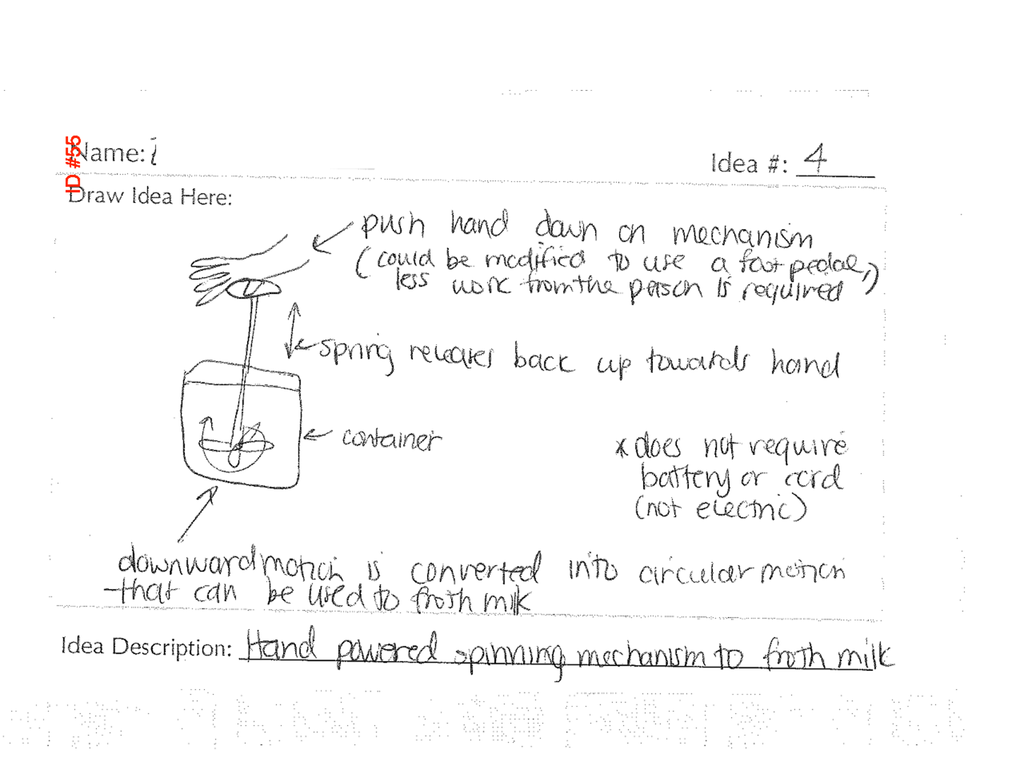 ID #55
Name: i
Idea #: 4
Draw Idea Here:
push hand down on mechanism
(could be modified to use a foot pedal,
less work from the person is required)
spring releases back up towards hand
container
* does not require
battery or cord
(not electric)
downward motion is converted into circular motion
that can be used to froth milk
Idea Description: Hand powered spinning mechanism to froth milk